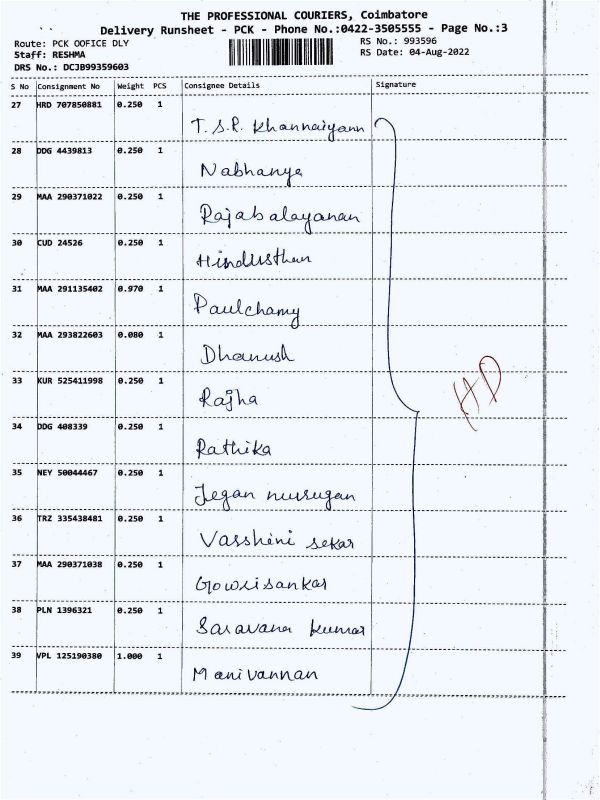 THE PROFESSIONAL COURIERS, Coimbatore
Delivery Runsheet - PCK - Phone No.:0422-3505555 - Page No.:3
Route: PCK OOFICE DLY RS No.: 993596
Staff: RESHMA RS Date: 04-Aug-2022
DRS No.: DCJB99359603
S No Consignment No Weight PCS Consignee Details Signature
27 HRD 707850881 0.250 1 T.S.R. Khannaiyann
28 DDG 4439813 0.250 1 Nabhanya
29 MAA 290371022 0.250 1 Rajabalayanan
30 CUD 24526 0.250 1 Hindusthan
31 MAA 291135402 0.970 1 Paulchamy
32 MAA 293822603 0.080 1 Dhanush
33 KUR 525411998 0.250 1 Rajha
HD
34 DDG 408339 0.250 1 Rathika
35 NEY 50044467 0.250 1 Jegan murugan
36 TRZ 335438481 0.250 1 Vasshini sekar
37 MAA 290371038 0.250 1 Gowrisankar
38 PLN 1396321 0.250 1 Saravana kumar
39 VPL 125190380 1.000 1 Manivannan